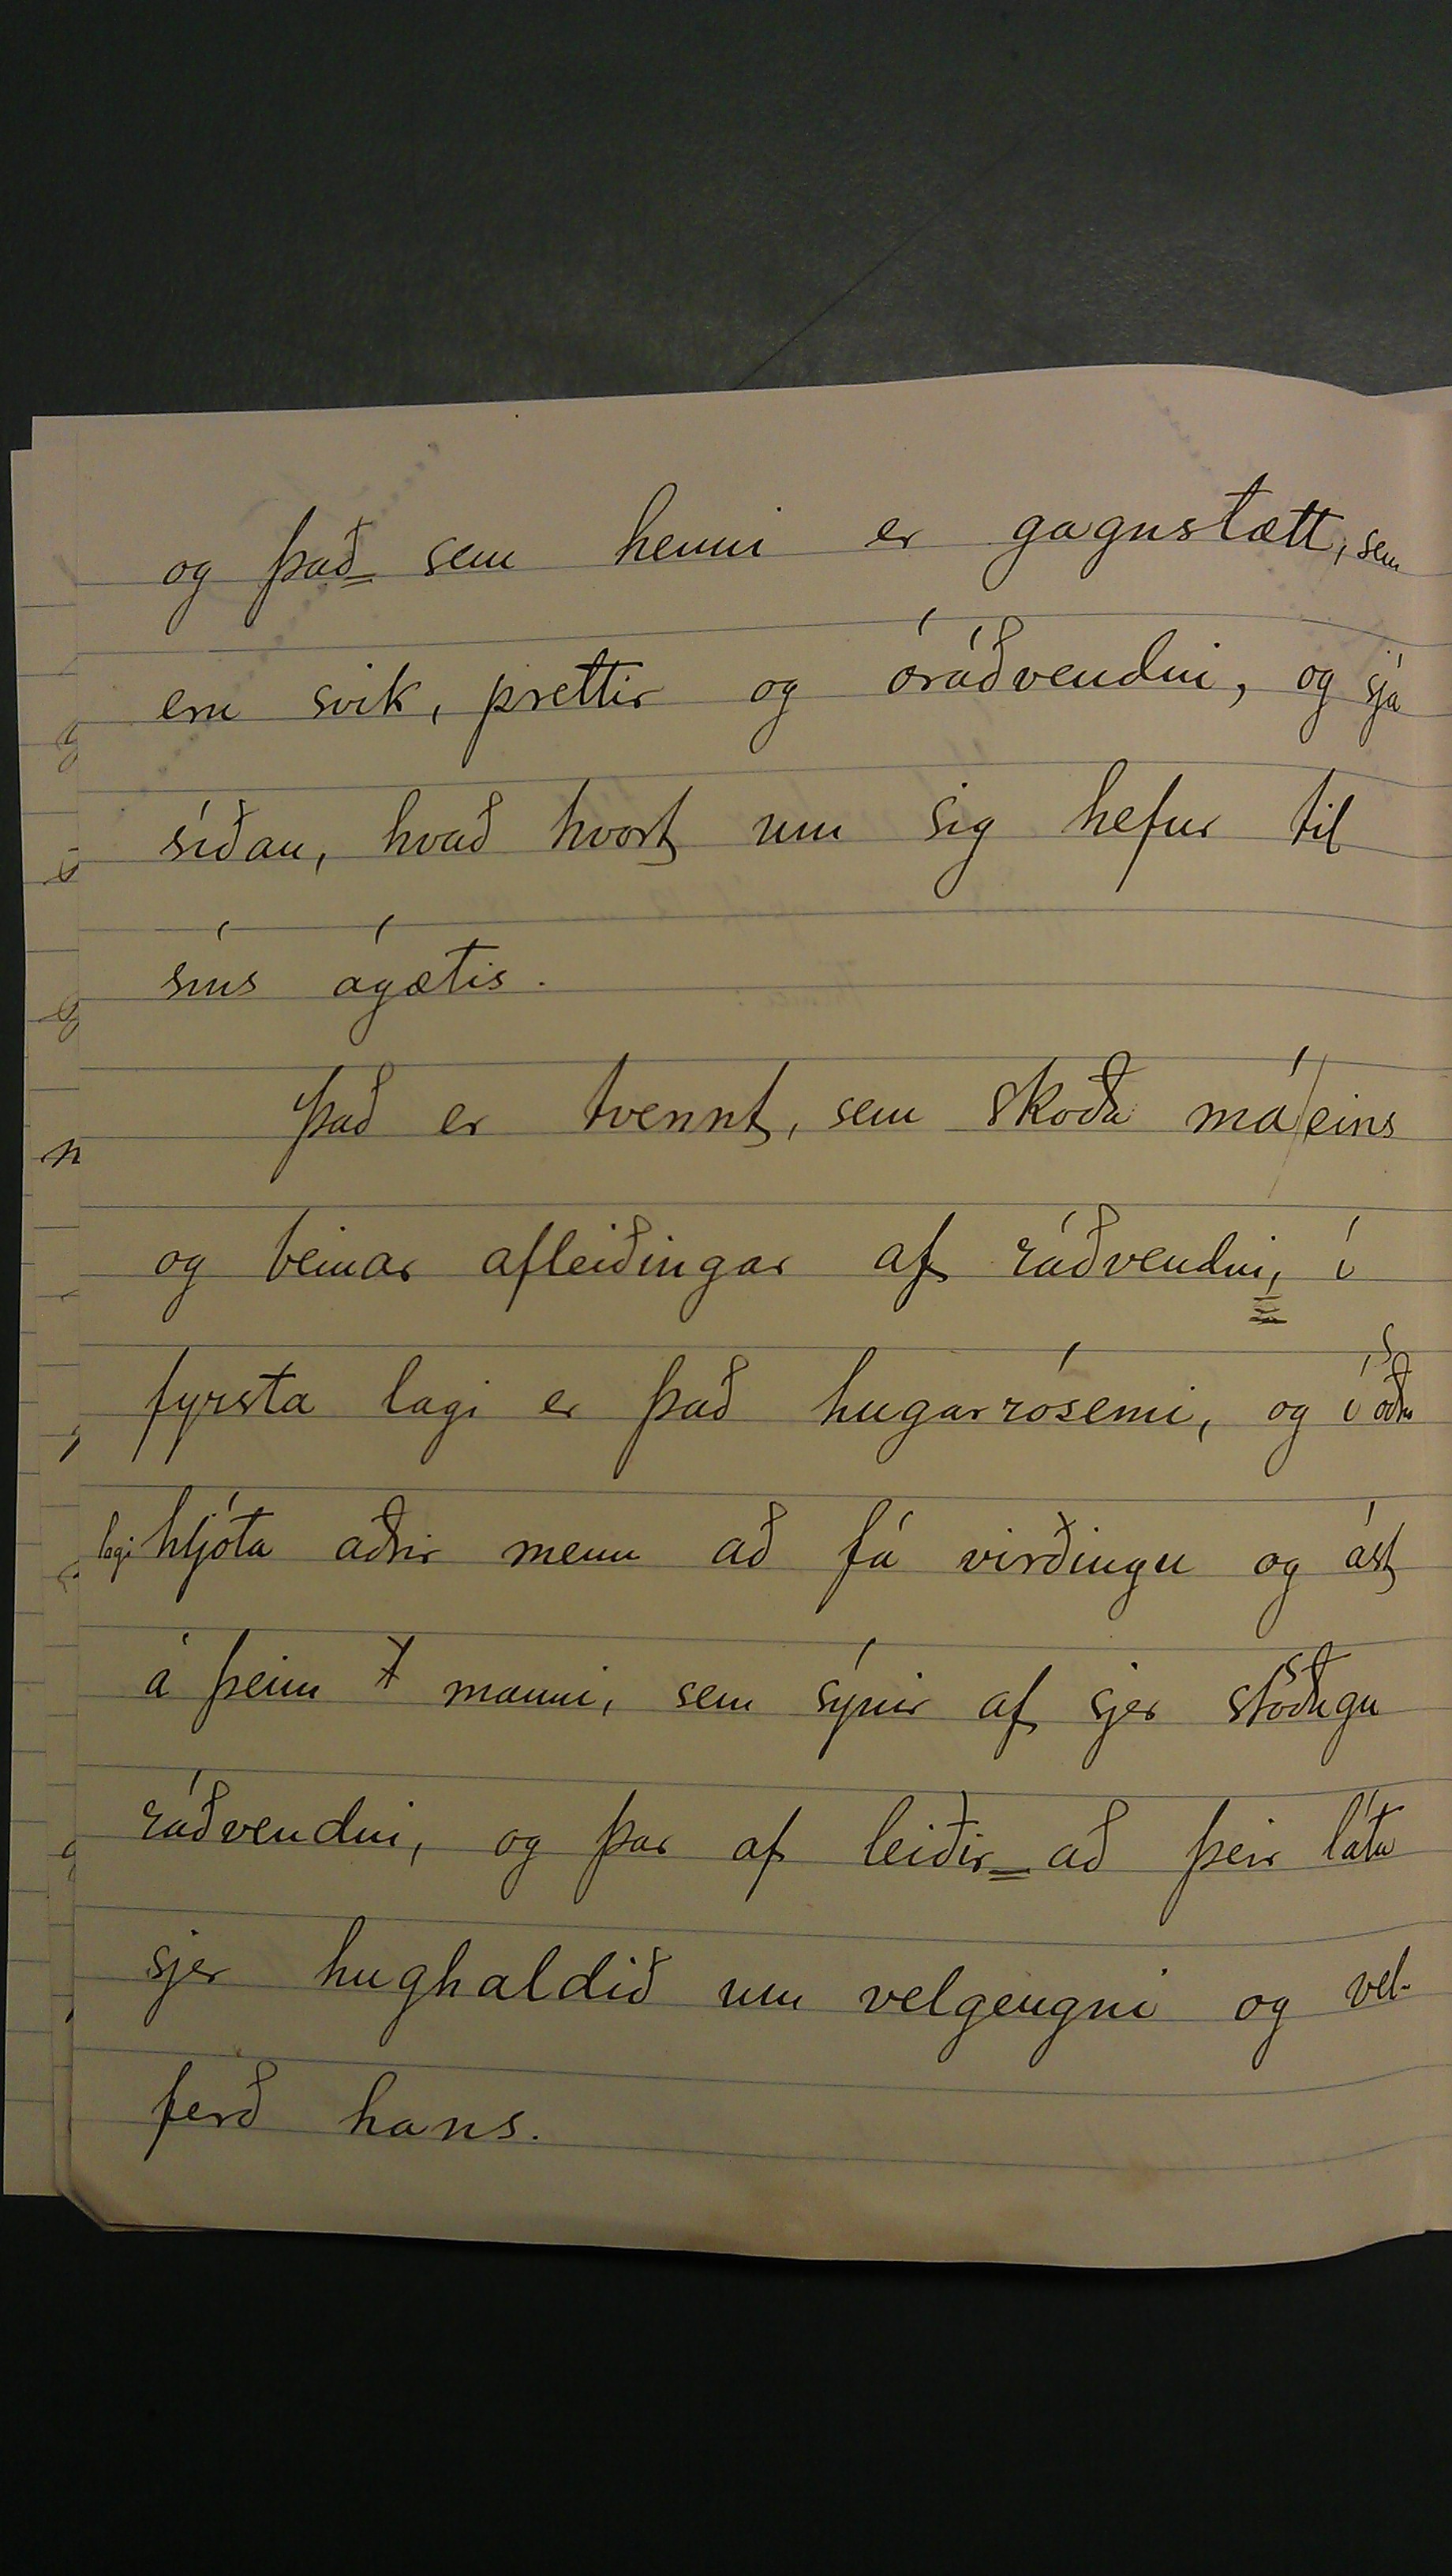 og það sem henni er gagnstætt, sem
eru svik, prettir og óráðvendni, og sjá
síðan, hvað hvort um sig hefur til
síns ágætis.
Það er tvennt, sem skoða má eins
og beinar afleiðingar af ráðvendni, í
fyrsta lagi er það hugarrósemi, og í öðru
lagi hljóta aðrir menn að fá virðingu og ást
á þeim manni, sem sýnir af sjer stöðugu
ráðvendni, og þar af leiðir að þeir láta
sjer hughaldið um velgengni og vel-
ferð hans.